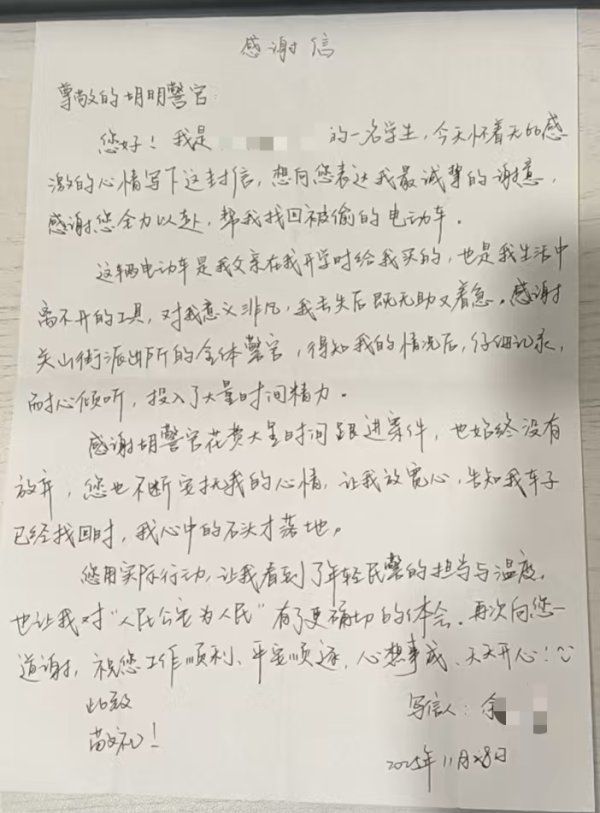 感谢信
尊敬的胡明警官:
您好！我是 的一名学生，今天怀着无比感
激的心情写下这封信，想向您表达我最诚挚的谢意，
感谢您全力以赴，帮我找回被偷的电动车。
这辆电动车是我父亲在我开学时给我买的，也是我生活中
离不开的工具，对我意义非凡，我丢失后既无助又着急。感谢
关山街派出所的全体警官，得知我的情况后，仔细记录，
耐心倾听，投入了大量时间精力。
感谢胡警官花费大量时间跟进案件，也始终没有
放弃，您也不断安抚我的心情，让我放宽心，告知我车子
已经找回时，我心中的石头才落地。
您用实际行动，让我看到了年轻民警的担当与温度，
也让我对“人民公安为人民”有了更确切的体会。再次向您一
道谢，祝您工作顺利、平安顺遂，心想事成、天天开心！
此致
敬礼！
写信人：余
2025年11月28日